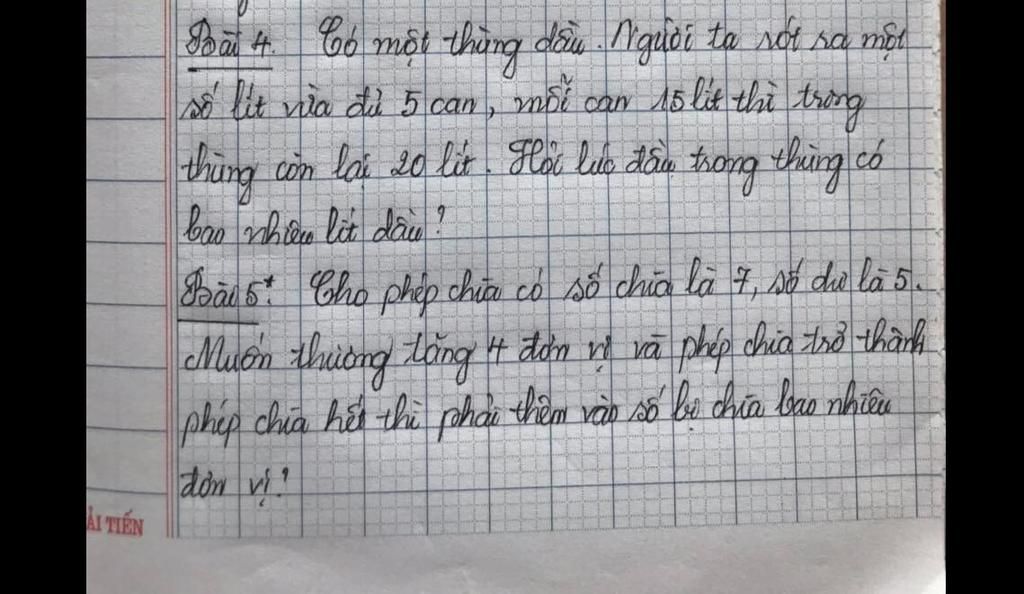 Bài 4. Có một thùng dầu. Người ta rót ra một
số lít vừa đủ 5 can, mỗi can 15 lít thì trong
thùng còn lại 20 lít. Hỏi lúc đầu trong thùng có
bao nhiêu lít dầu?
Bài 5*. Cho phép chia có số chia là 7, số dư là 5.
Muốn thương tăng 4 đơn vị và phép chia trở thành
phép chia hết thì phải thêm vào số bị chia bao nhiêu
đơn vị?
ẢI TIẾN